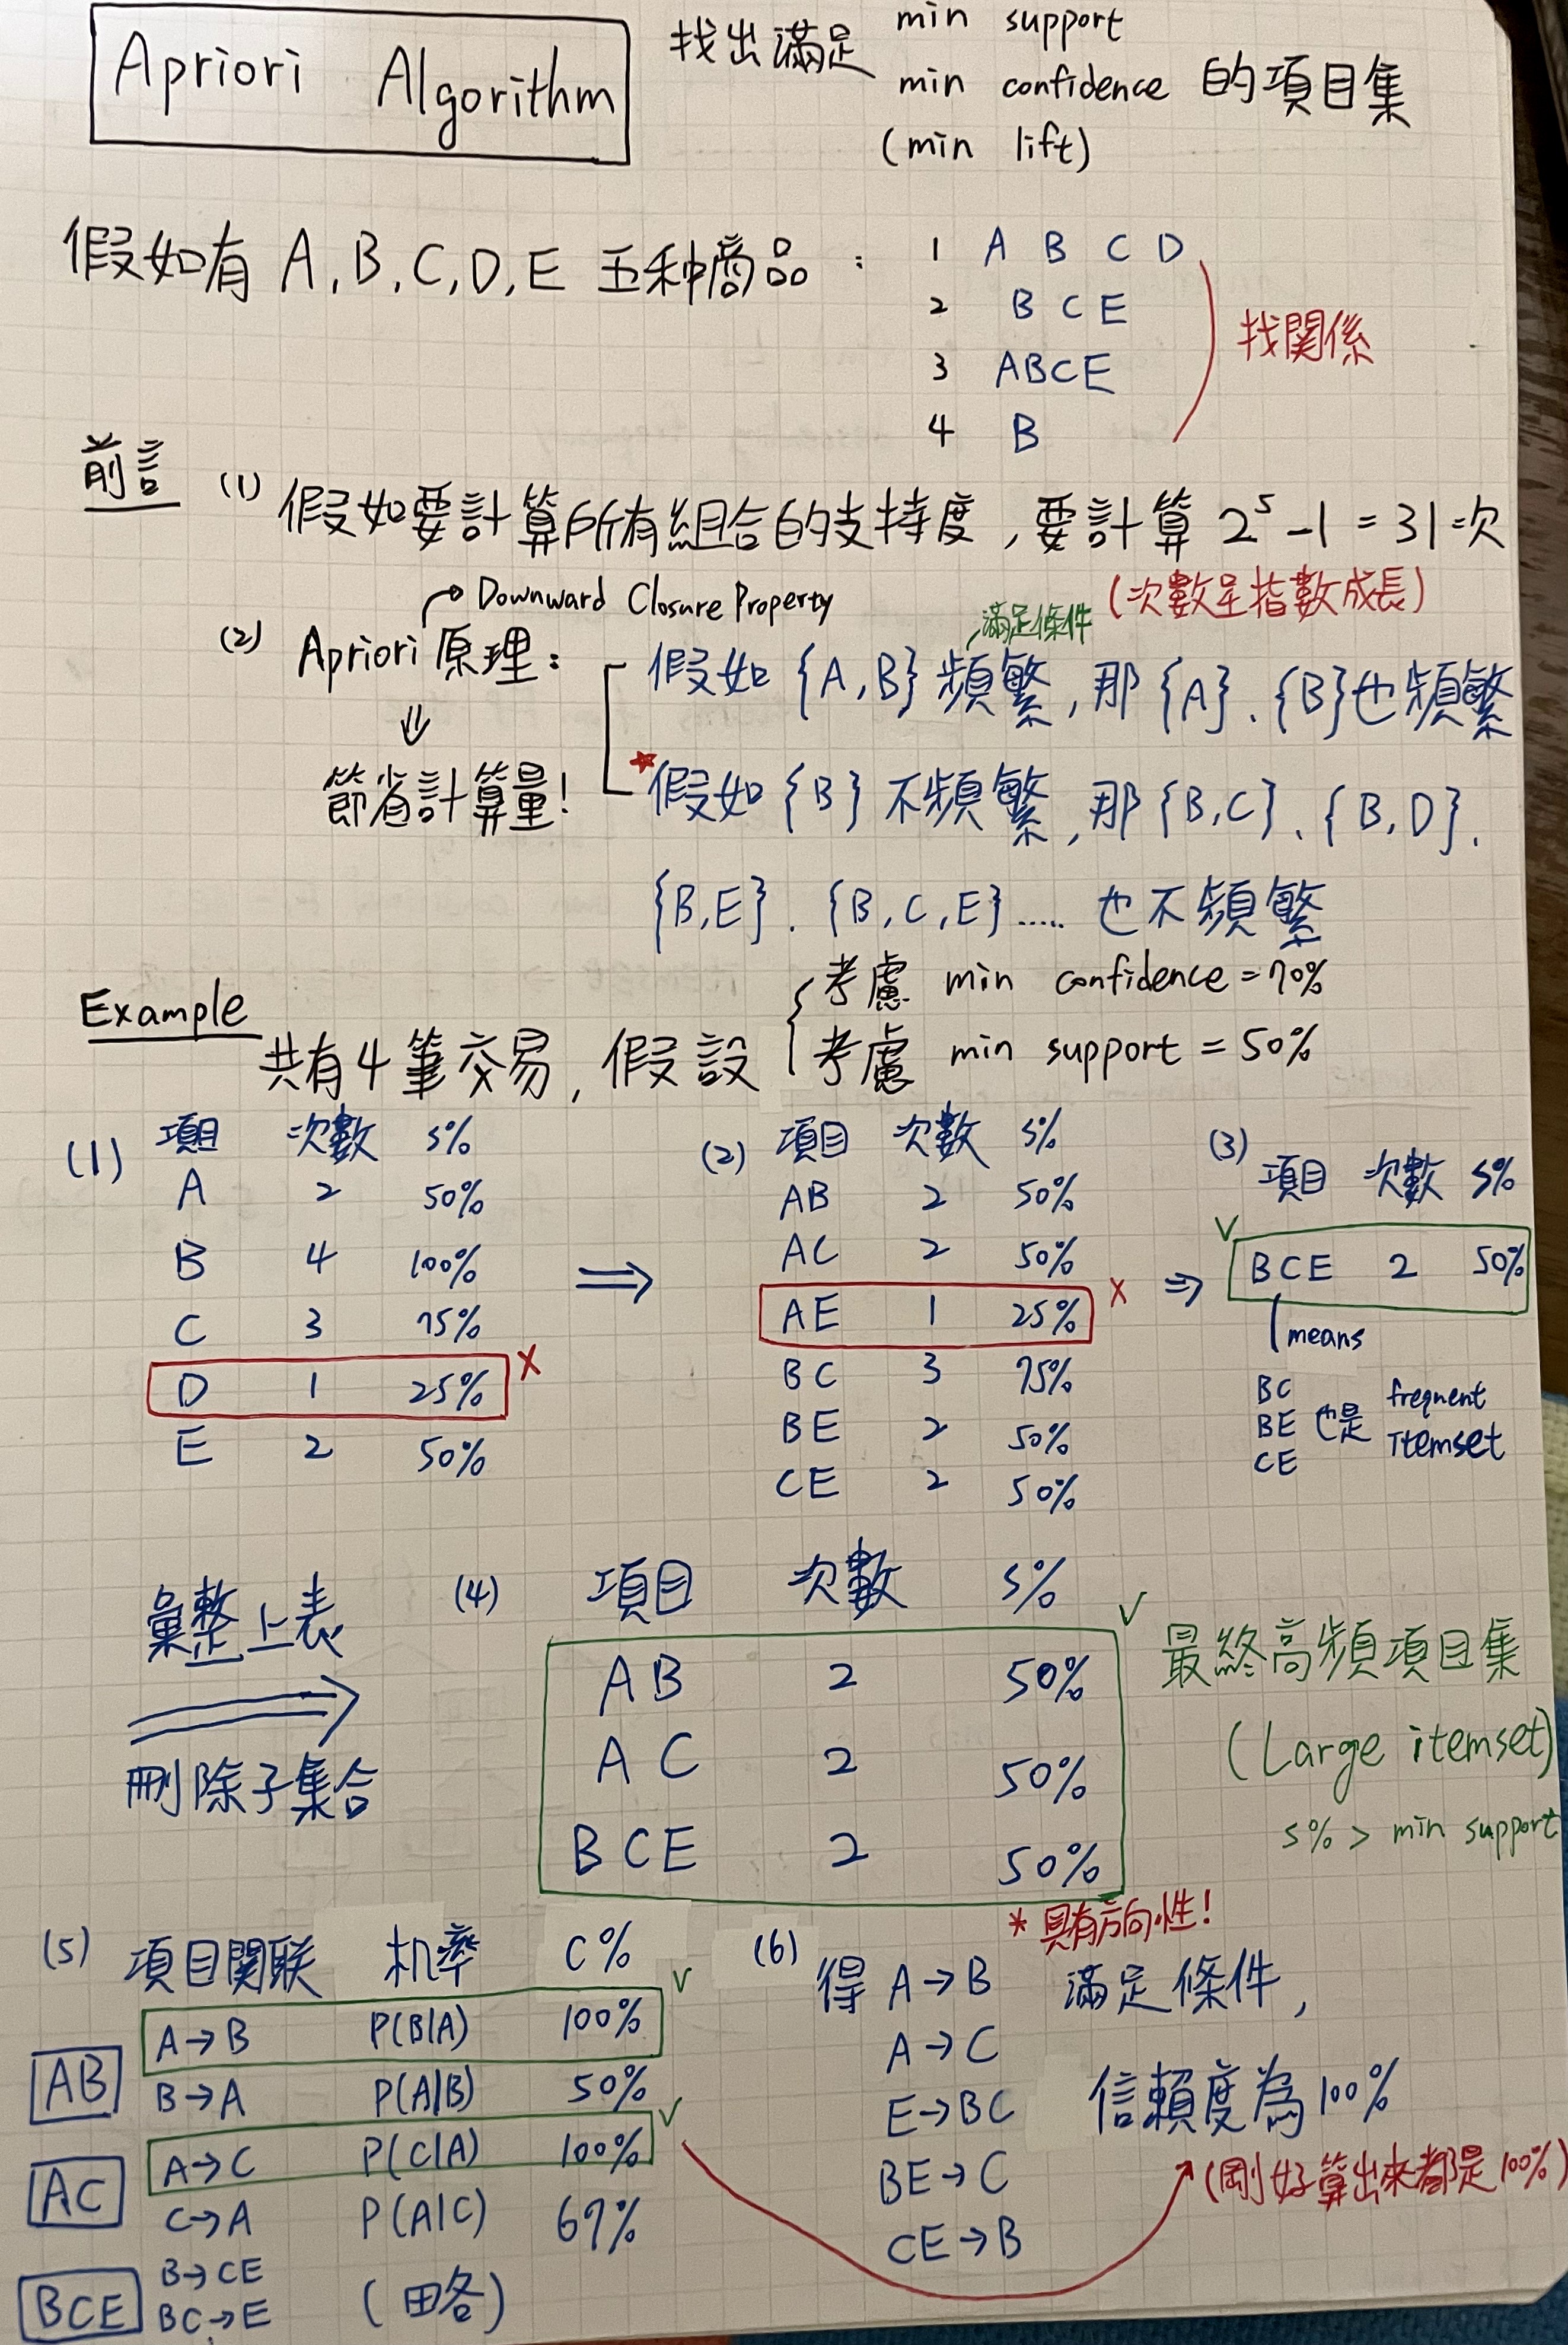 Apriori Algorithm
找出滿足 min support
min confidence 的項目集
(min lift)
假如有 A, B, C, D, E 五种商品：
1 A B C D
2 B C E
3 ABCE
4 B
找關係
前言 (1) 假如要計算所有組合的支持度，要計算 2⁵-1 = 31次
(次數呈指數成長)
Downward Closure Property
(2) Apriori 原理：
⇓
節省計算量!
滿足條件
假如 {A, B} 頻繁，那 {A}、{B}也頻繁
* 假如 {B} 不頻繁，那 {B,C}、{B,D}、
{B,E}、{B,C,E}..... 也不頻繁
Example 共有4筆交易，假設
考慮 min confidence = 70%
考慮 min support = 50%
(1) 項目 次數 s%
A 2 50%
B 4 100%
C 3 75%
D 1 25% X
E 2 50%
⇒
(2) 項目 次數 s%
AB 2 50%
AC 2 50%
AE 1 25% X
BC 3 75%
BE 2 50%
CE 2 50%
⇒
(3) 項目 次數 s%
BCE 2 50%
means
BC
BE 也是 frequent
CE Itemset
彙整上表
刪除子集合
(4) 項目 次數 s%
AB 2 50%
AC 2 50%
BCE 2 50%
最終高頻項目集
(Large itemset)
s% > min support
(5) 項目関联 机率 C%
AB
A→B P(B|A) 100%
B→A P(A|B) 50%
AC
A→C P(C|A) 100%
C→A P(A|C) 67%
BCE
B→CE
BC→E
(田各)
* 具有方向性!
(6) 得 A→B 滿足條件，
A→C
E→BC 信賴度為100%
BE→C
CE→B
(剛好算出來都是100%)